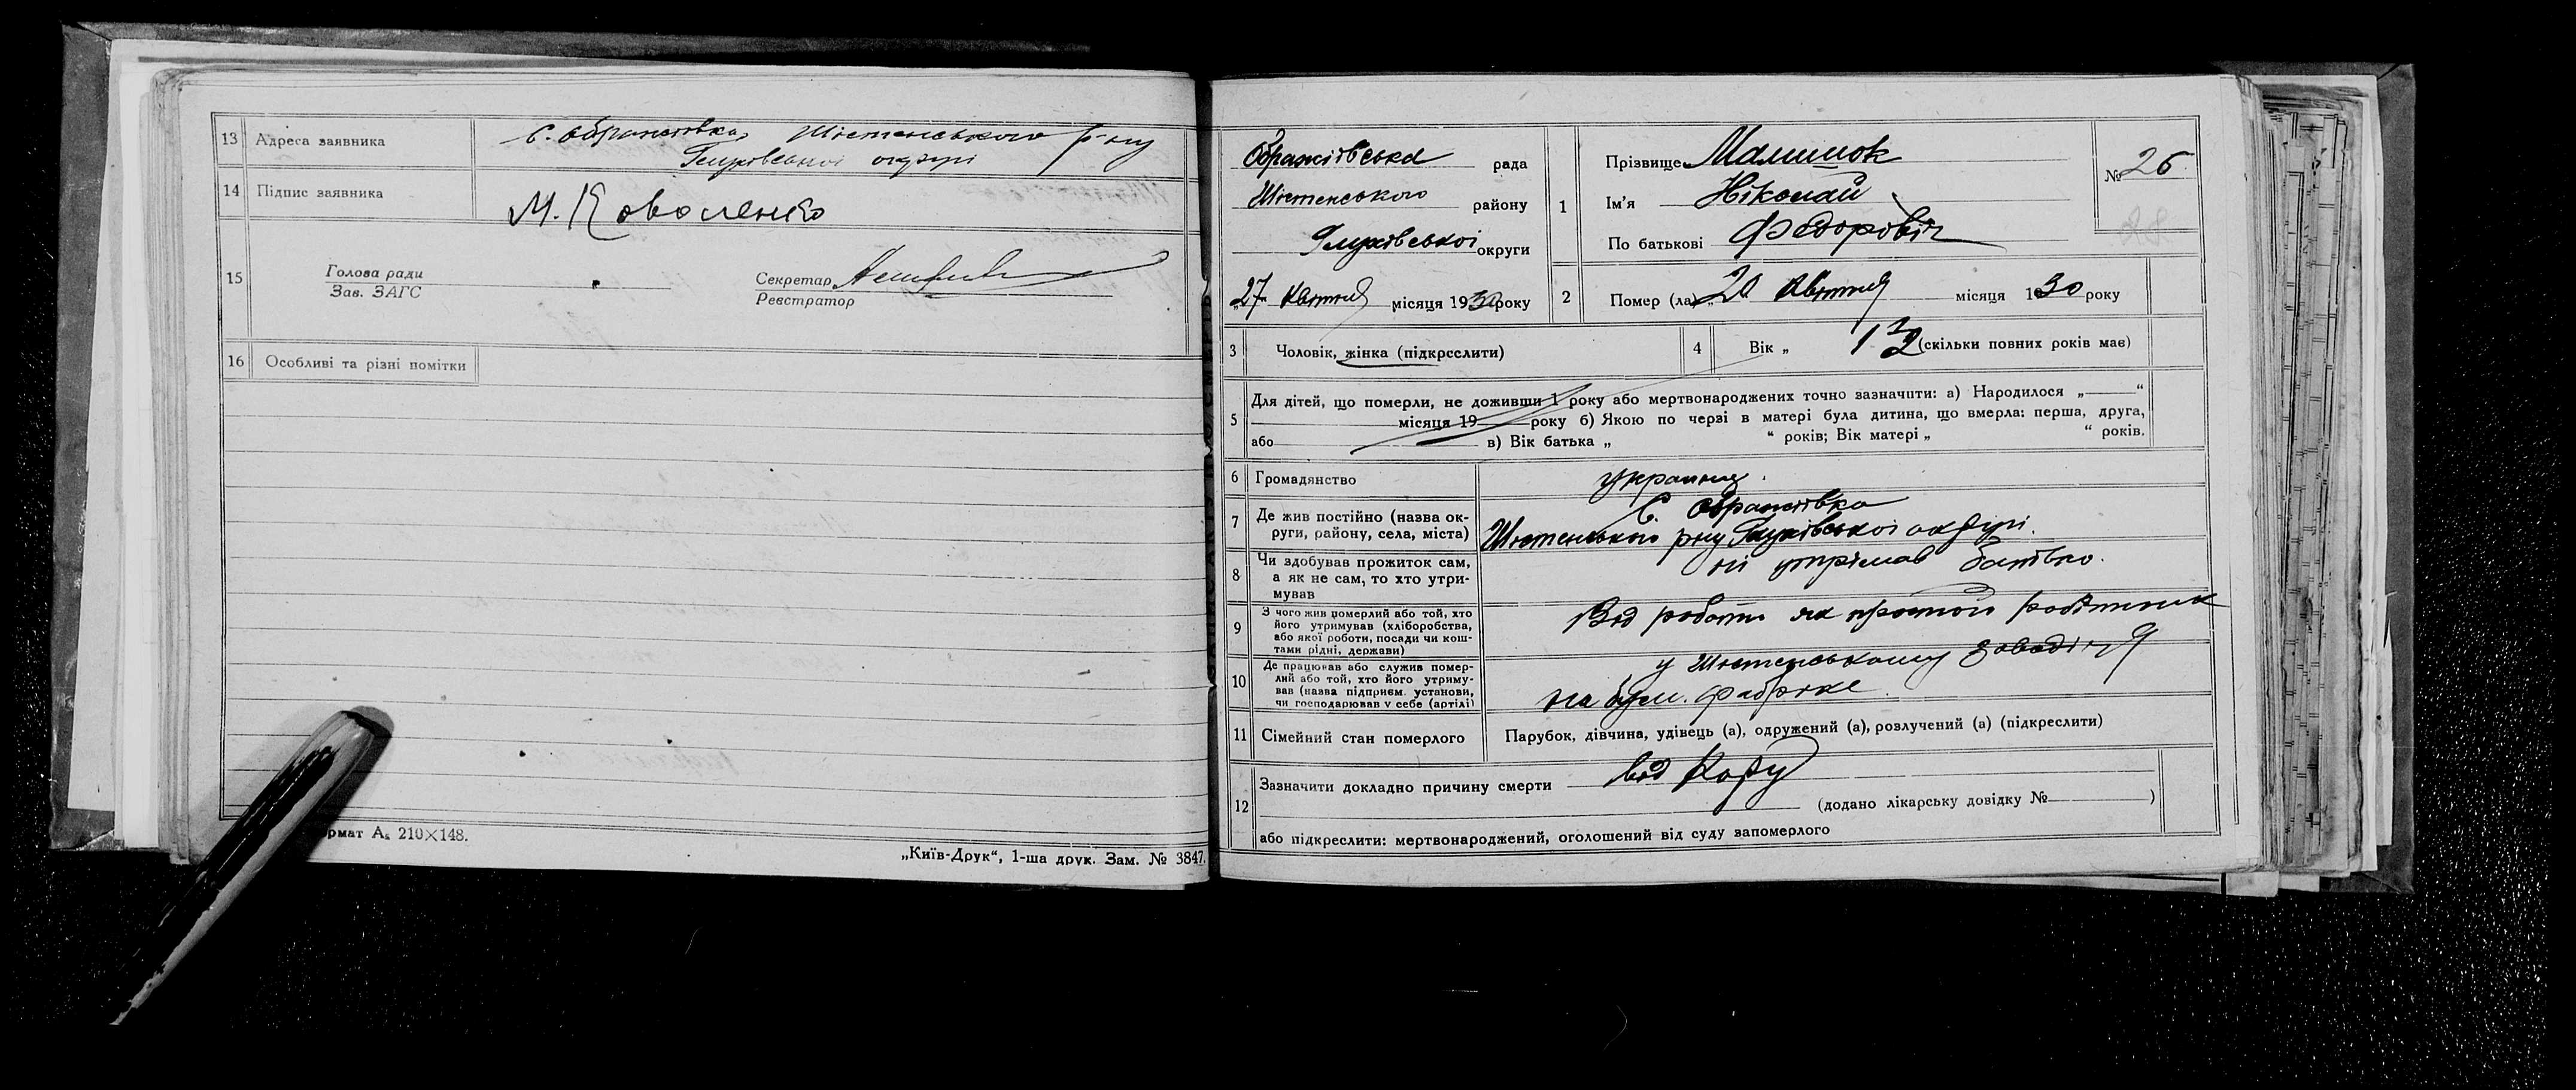 13 Адреса заявника с. Ображіївка, Шостенського р-ну
Глухівської округи
14 Підпис заявника М. Коваленко
15 Голова ради
Зав. ЗАГС
Секретар
Реєстратор
16 Особливі та різні помітки
рмат А₅ 210×148.
„Київ-Друк“, 1-ша друк. Зам. № 3847.
Ображіївська рада
Шостенського району
Глухівської округи
„27 квітня місяця 1930 року
1 Прізвище Малишок
Ім'я Ніколай
По батькові Федоровіч
№ 26
2 Помер (ла) „20 квітня місяця 1930 року
3 Чоловік, жінка (підкреслити)
4 Вік „ 1 (скільки повних років має)
5 Для дітей, що померли, не доживши 1 року або мертвонароджених точно зазначити: а) Народилося „ “
місяця 19 року б) Якою по черзі в матері була дитина, що вмерла: перша, друга,
або в) Вік батька „ “ років; Вік матері „ “ років.
6 Громадянство
7 Де жив постійно (назва ок-
руги, району, села, міста)
С. Ображіївка
Шостенського р-ну Глухівської округі.
8 Чи здобував прожиток сам,
а як не сам, то хто утри-
мував
ні утрімав батько.
9 З чого жив померлий або той, хто
його утримував (хліборобства,
або якої роботи, посади чи кош-
тами рідні, держави)
Від роботи як простой робітник
10 Де працював або служив помер-
лий або той, хто його утриму-
вав (назва підприєм. установи,
чи господарював у себе (артілі)
у Шостенському
на бум. фабріке
11 Сімейний стан померлого Парубок, дівчина, удівець (а), одружений (а), розлучений (а) (підкреслити)
12 Зазначити докладно причину смерти від Кору
(додано лікарську довідку № )
або підкреслити: мертвонароджений, оголошений від суду запомерлого